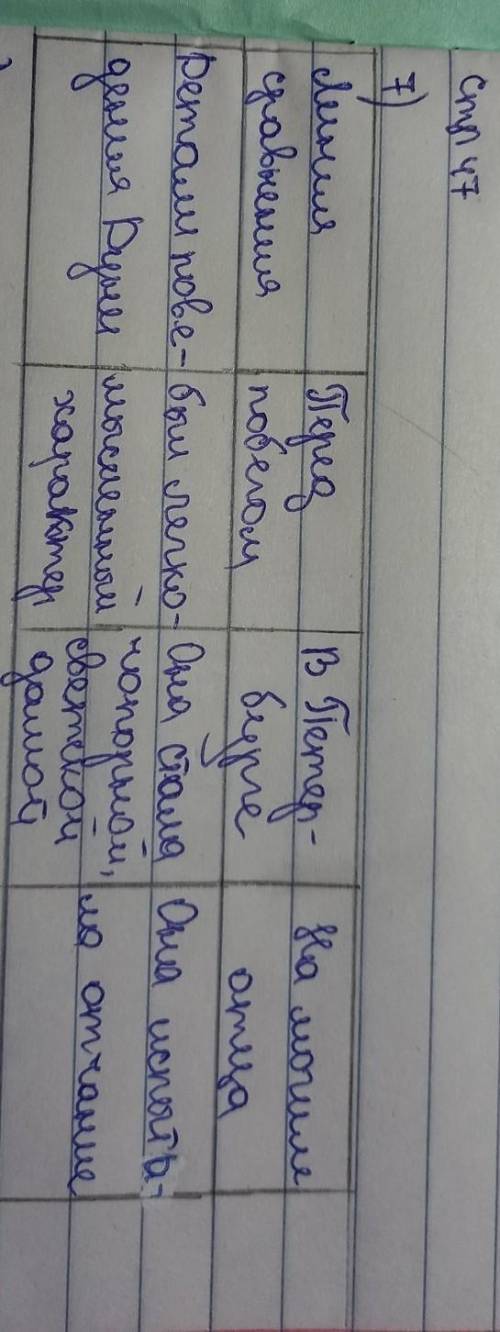 стр 47
7)
Линия сравнения
Перед побегом
В Петер-
бурге
На могиле
отца
Детали пове-
дения Дуни
был легко-
мысленный
характер
Она стала
чопорной,
светской
дамой
Она испыты-
ла отчание